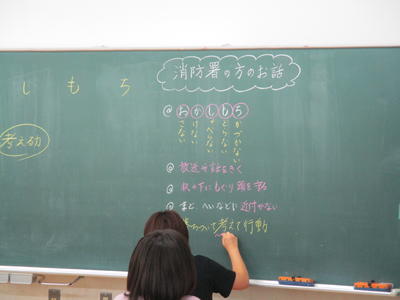 消防署の方のお話
し も ち
◎おかしもち
さない
けない
ゃべらない
どらない
かづかない
考える力
◎放送や話をきく
◎机の下にもぐり頭を守る
◎まど、へいなどに近付かない
ちついて考えて行動